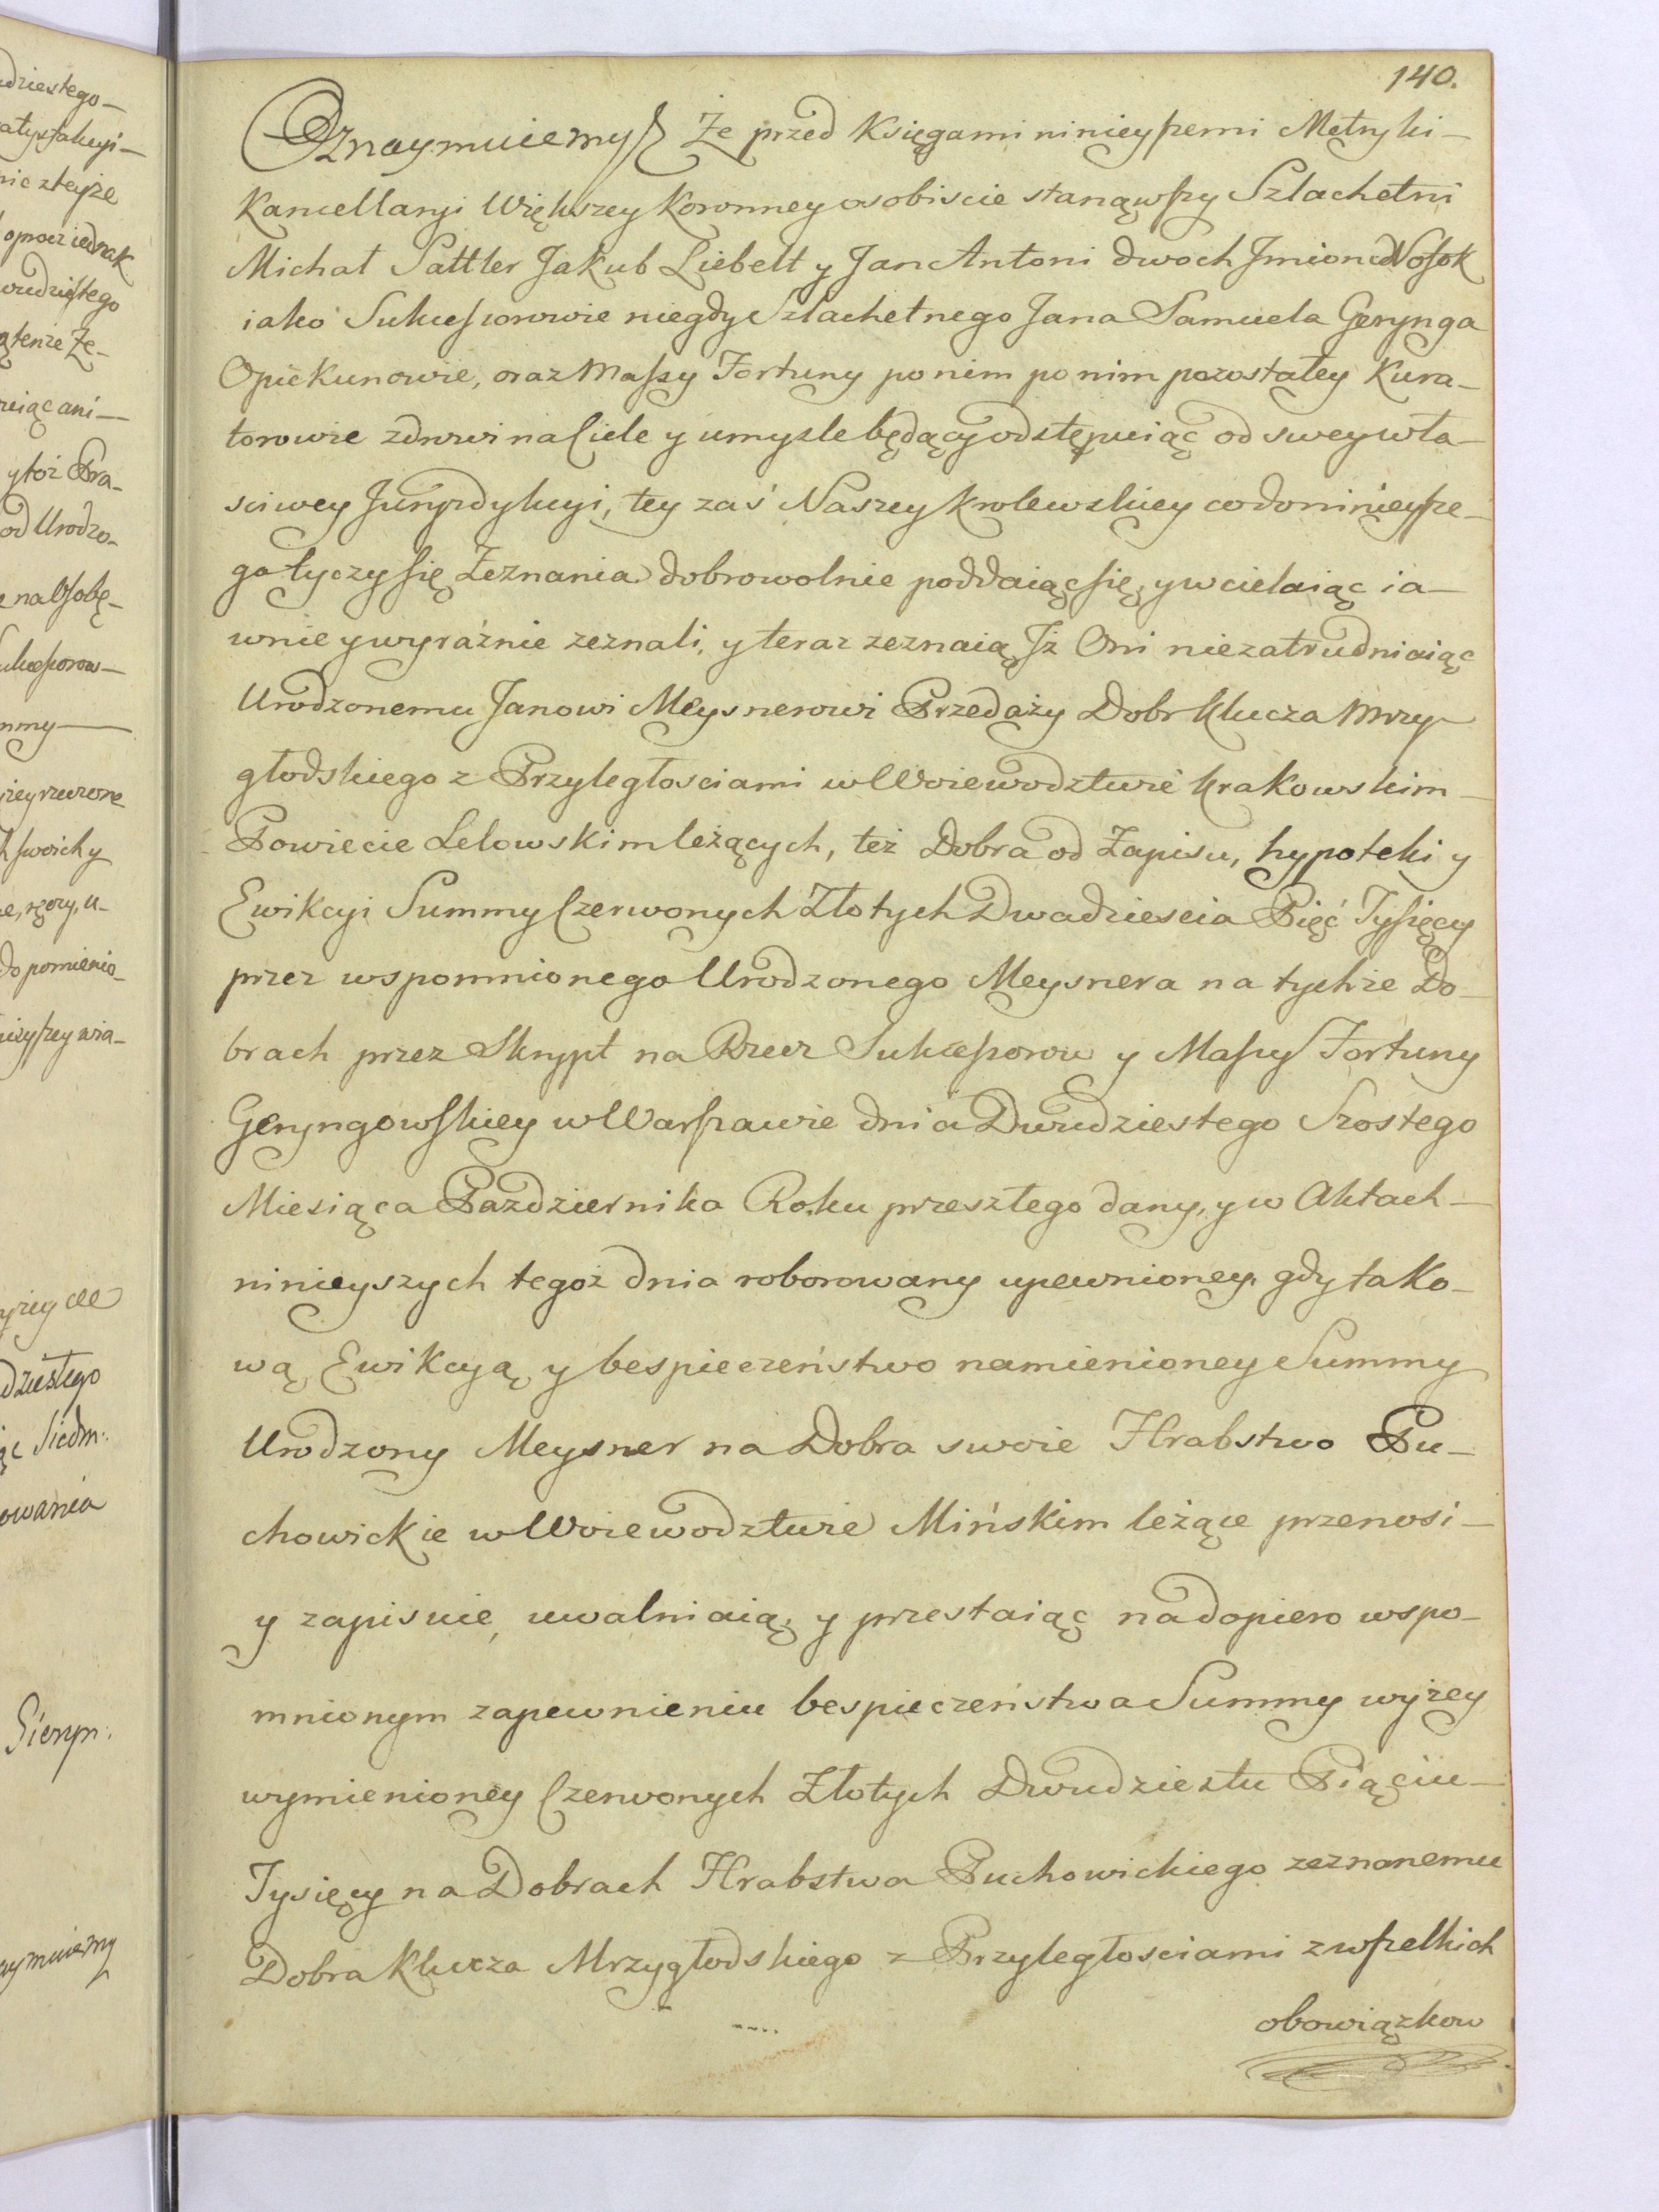 dziestego
atysfakcyi
nie zteyże
oprocz iednak
wudziestego
ątenże Ze-
iąc ani
y toż Pra-
od Urodzo-
na Osobę
ukcessorow
mmy
żey rzeczone
h swoich y
do pomienio-
owania
Sierp:
aymuiemy
140.
Oznaymuiemy Że przed Księgami ninieyszemi Metryki
Kancellaryi Większey Koronney osobiscie stanąwszy Szlachetni
Michał Sattler Jakub Liebelt y Jan Antoni dwoch Jmion Nosok
iako Sukcessorowie niegdy Szlachetnego Jana Samuela Gerynga
Opiekunowie, oraz Massy Fortuny po nim po nim pozostałey Kura-
torowie zdrowi na Ciele y umysle będący odstępuiąc od swey wła-
sciwey Juryzdykcyi, tey zaś Naszey Krolewskiey co do ninieysze-
go tyczy się Zeznania dobrowolnie poddaiąc się, y wcielaiąc ia-
wnie y wyraźnie zeznali, y teraz zeznaią Jż Oni niezatrudniaiąc
Urodzonemu Janowi Meysnerowi Przedaży Dobr Klucza Mrzy-
głodskiego z Przyległosciami w Woiewodztwie Krakowskim
Powiecie Lelowskim leżących, też Dobra od Zapisu, hypoteki y
Ewikcyi Summy Czerwonych Złotych Dwadziescia Pięć Tysięcy
przez wspomnionego Urodzonego Meysnera na tychże Do-
brach przez Skrypt na Rzecz Sukcessorow y Massy Fortuny
Geryngowskiey w Warszawie dnia Dwudziestego Szostego
Miesiąca Pazdziernika Roku przeszłego dany, y w Aktach
ninieyszych tegoż dnia roborowany upewnioney, gdy tako-
wą Ewikcyą y bespieczeństwo namienioney Summy
Urodzony Meysner na Dobra swoie Hrabstwo Pu-
chowickie w Woiewodztwie Mińskim leżące przenosi
y zapisuie, uwalniaią, y przestaiąc na dopiero wspo-
mnionym zapewnieniu bespieczeństwa Summy wyżey
wymienioney Czerwonych Złotych Dwudziestu Piąciu
Tysięcy na Dobrach Hrabstwa Puchowickiego zeznanemu
Dobra Klucza Mrzygłodskiego z Przyległosciami z wszelkich
obowiązkow